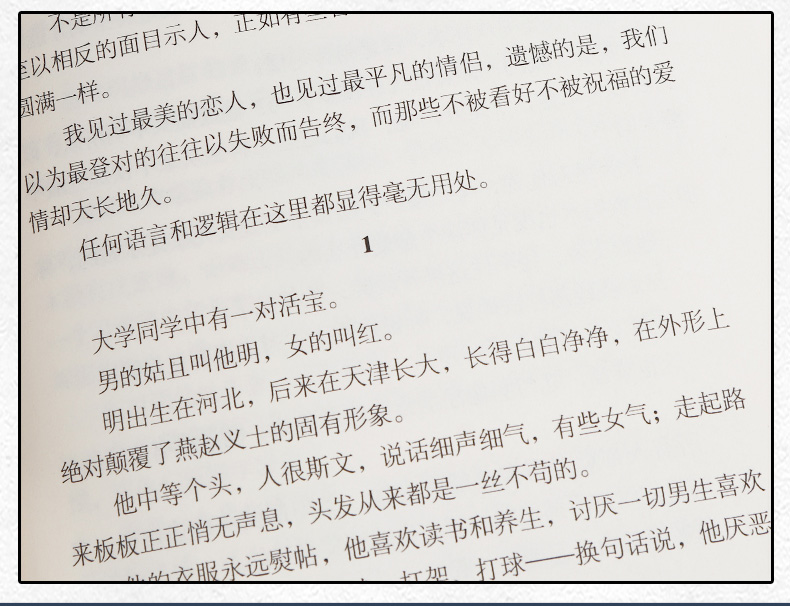 不是所有
至以相反的面目示人，正如有些
圆满一样。
我见过最美的恋人，也见过最平凡的情侣，遗憾的是，我们
以为最登对的往往以失败而告终，而那些不被看好不被祝福的爱
情却天长地久。
任何语言和逻辑在这里都显得毫无用处。
1
大学同学中有一对活宝。
男的姑且叫他明，女的叫红。
明出生在河北，后来在天津长大，长得白白净净，在外形上
绝对颠覆了燕赵义士的固有形象。
他中等个头，人很斯文，说话细声细气，有些女气；走起路
来板板正正悄无声息，头发从来都是一丝不苟的。
他的衣服永远熨帖，他喜欢读书和养生，讨厌一切男生喜欢
打架、打球——换句话说，他厌恶